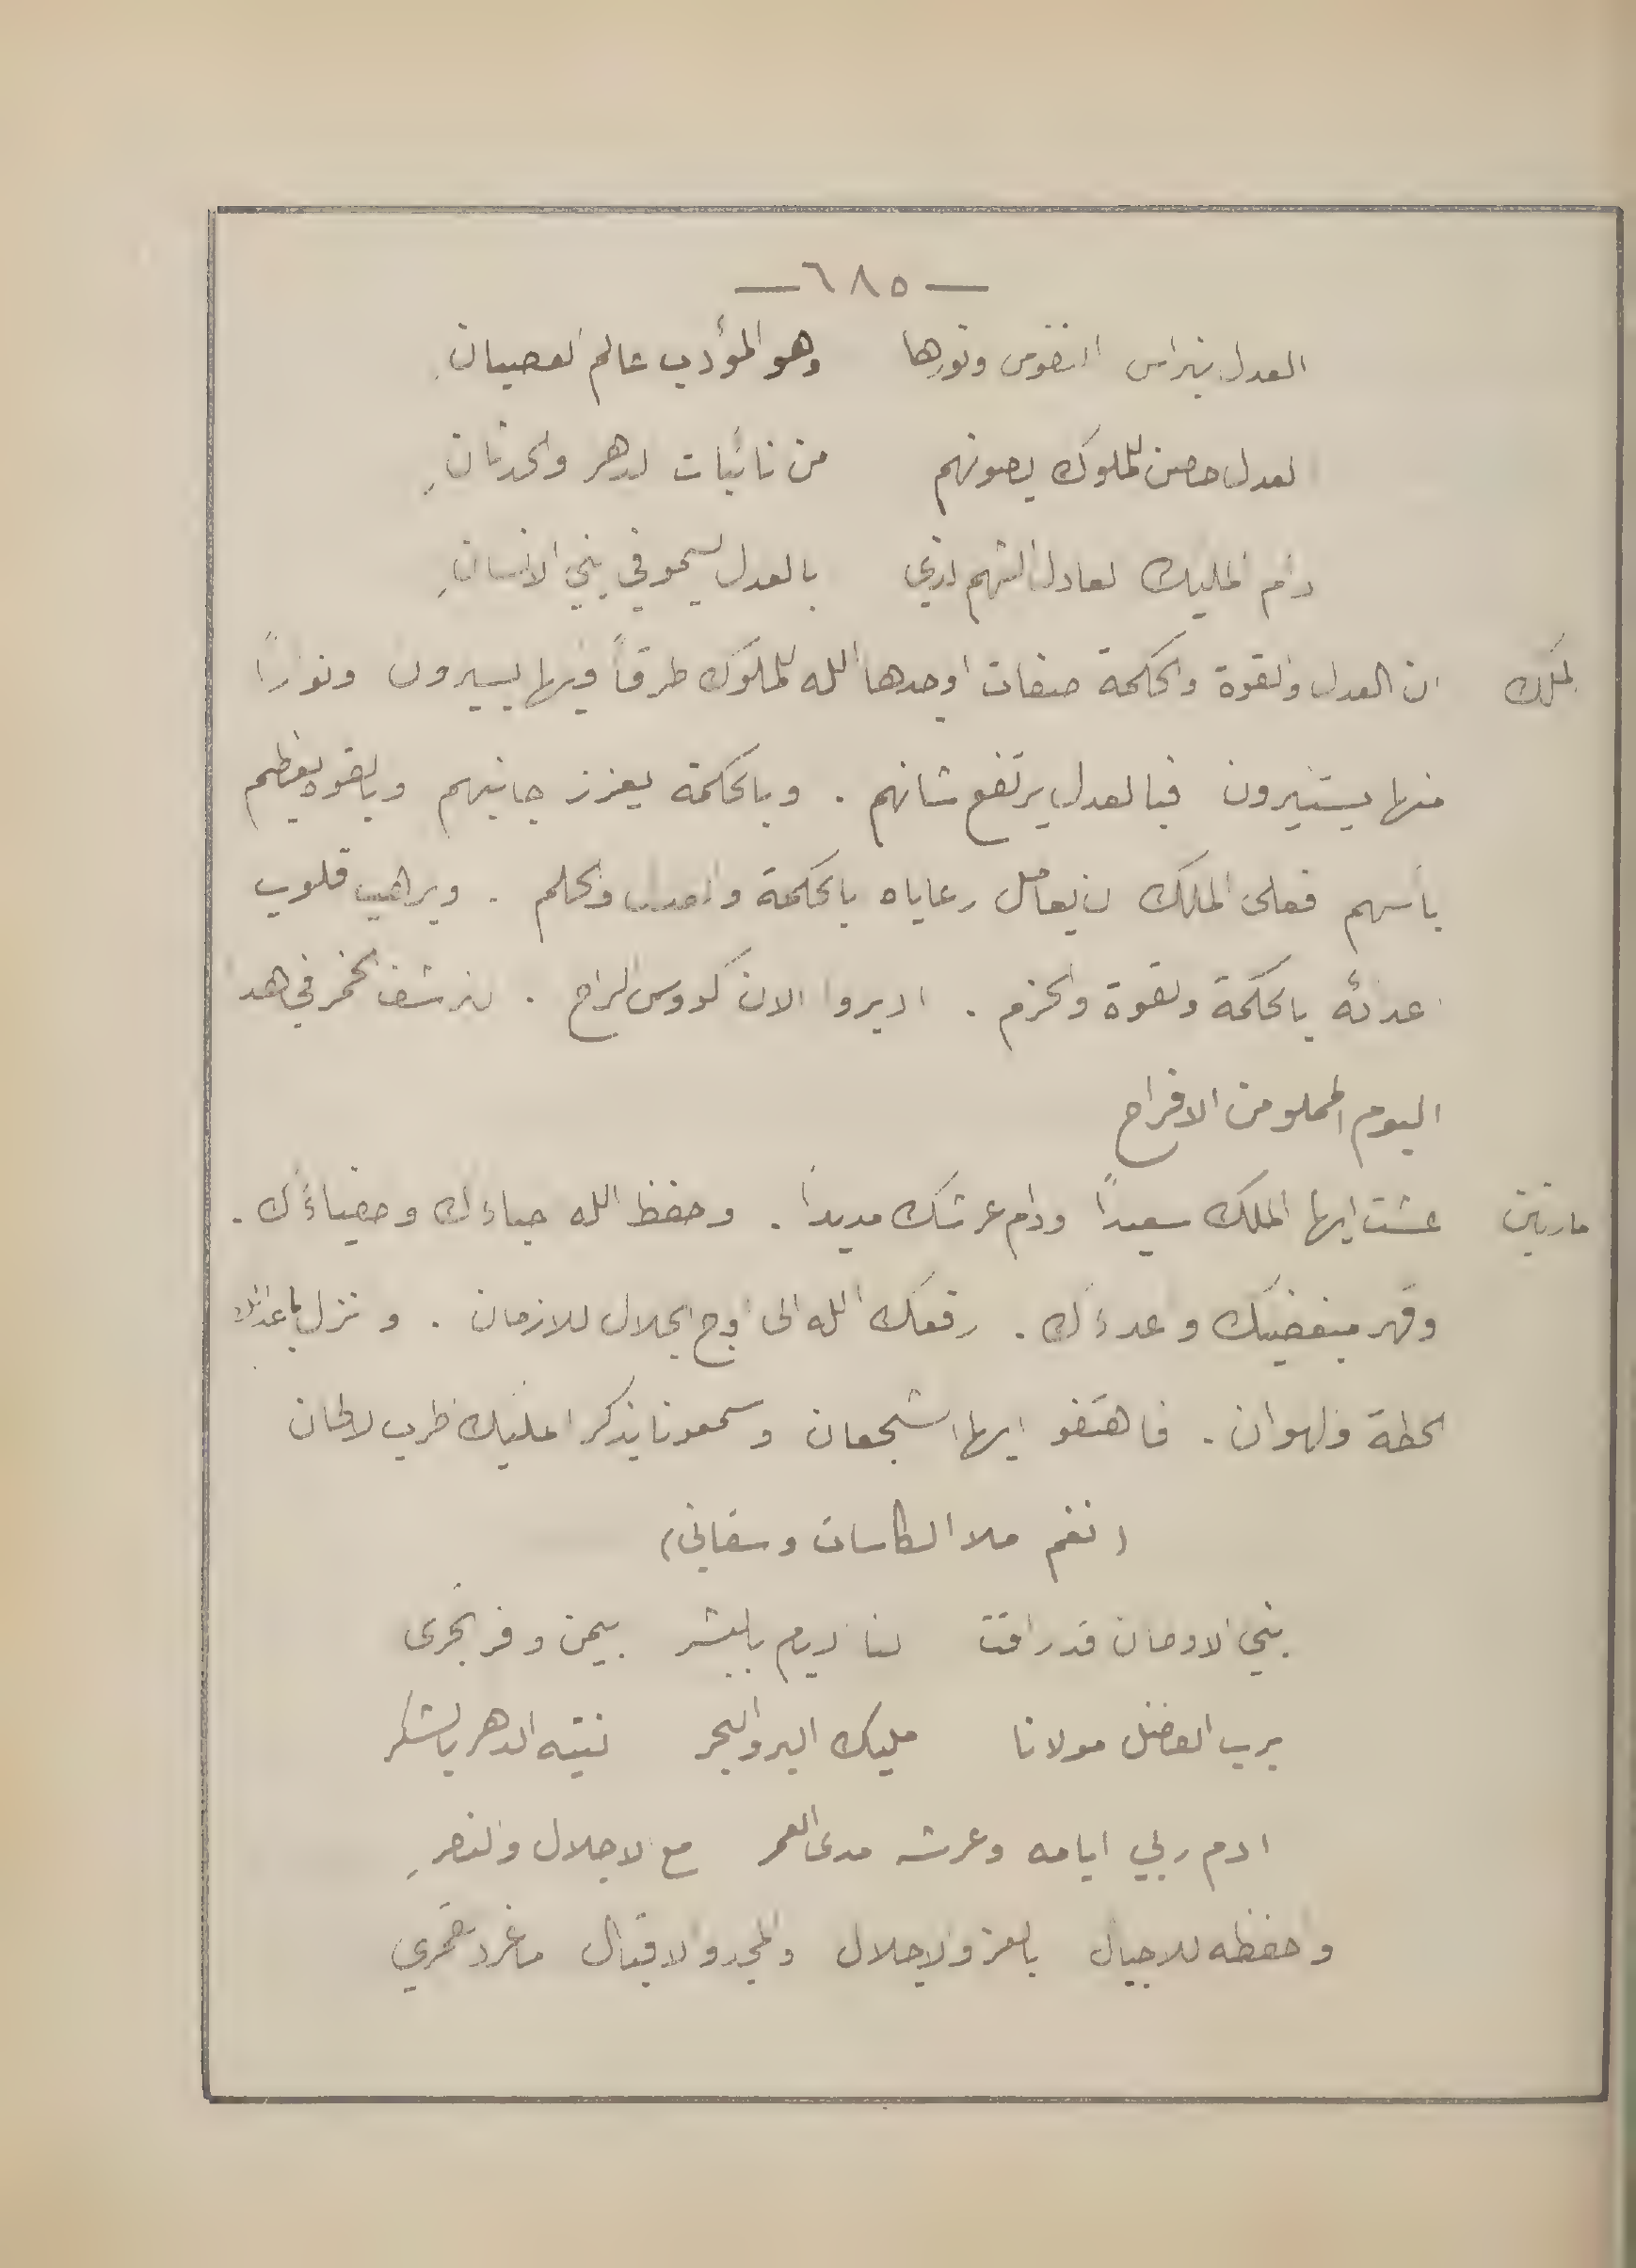 — ٦٨٥ —
العدل نبراس النفوس ونورها وهو المؤدب عالم العصيان
العدل حصن للملوك يصونهم من نائبات الدهر والحدثان
دام المليك العادل الشهم الذي بالعدل يسمو في بني الانسان
الملك ان العدل والقوة والحكمة صفات اوجدها الله للملوك طرقاً فيها يسيرون ونوراً
منها يستنيرون فبالعدل يرتفع شانهم . وبالحكمة يعزز جانبهم وبالقوه يعظم
بأسهم فعلى المالك ان يعامل رعاياه بالحكمة والعدل والحلم . ويرهب قلوب
اعدائه بالحكمة والقوة والحزم . اديروا الان كؤوس الراح . لنرشف الخمر في هذا
اليوم المملو من الافراح
مارتين عشت ايها الملك سعيداً ودام عرشك مديداً . وحفظ الله احباءك وحفياءك .
وقهر مبغضيك واعداءك . رفعك الله الى اوج الجلال للازمان . وانزل باعدائك
الحطة والهوان . فاهتفوا ايها الشجعان وسمعونا بذكر المليك اطرب الالحان
(نغم ملا الكاسات وسقاني)
بني الاوطان قد راقت لنا الايام بالبشر بيمن وافر يجرى
برب الفضل مولانا مليك البر والبحر نتيه الدهر بالشكر
ادم ربي ايامه وعرشه مدى العمر مع الاجلال والنصر
واحفظه للاجيال بالعز والاجلال والمجد والاقبال ما غرد القمري